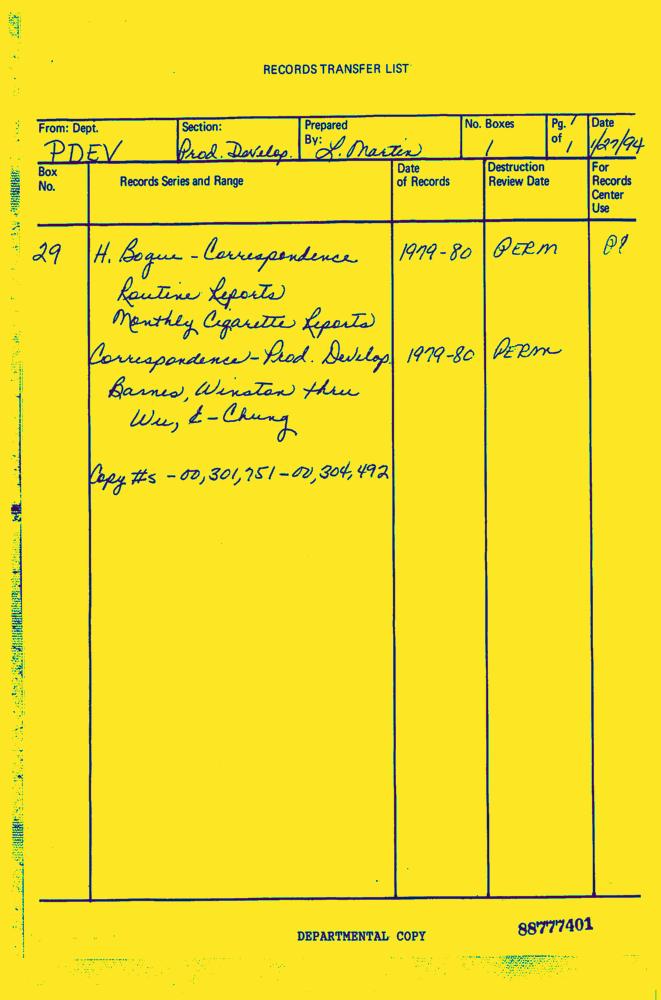 RECORDS TRANSFER LIST
From: Dept. PDEV
Section: Prod. Develop.
Prepared By: L. Martin
No. Boxes 1
Pg. 1 of 1
Date 1/27/94
Box No.
Records Series and Range
Date of Records
Destruction Review Date
For Records Center Use
29 H. Bogue - Correspondence 1979-80 PERM
Routine Reports
Monthly Cigarette Reports
Correspondence - Prod. Develop. 1979-80 PERM
Barnes, Winston thru
Wu, - Chung
Copy #s - 00,301,751 - 00,304,492
DEPARTMENTAL COPY
88777401